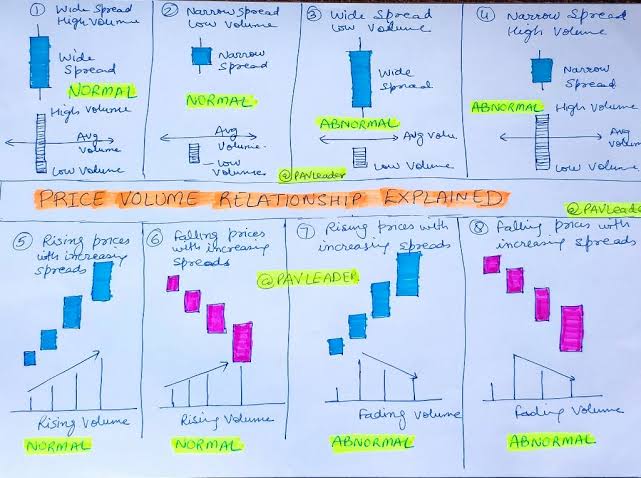 ① Wide Spread
High Volume
Wide
Spread
NORMAL
High Volume
Avg
Volume
Low Volume
② Narrow Spread
Low Volume
Narrow
Spread
NORMAL
Avg
Volume.
Low
Volume.
③ Wide Spread
Low Volume
Wide
Spread
ABNORMAL
Avg Volu.
Low Volume
@PAVLeader
④ Narrow Spread
High Volume
Narrow
Spread
ABNORMAL
High Volume
Avg
Volum
Low Volume
PRICE VOLUME RELATIONSHIP EXPLAINED
@PAVLeade
⑤ Rising prices
with increasing
spreads
Rising Volume
NORMAL
⑥ Falling prices
with increasing
Spreads
Rising Volume
NORMAL
@PAVLEADER
⑦ Rising prices with
increasing spreads
Fading Volume
ABNORMAL
⑧ Falling prices with
increasing spreads
Fading Volume
ABNORMAL